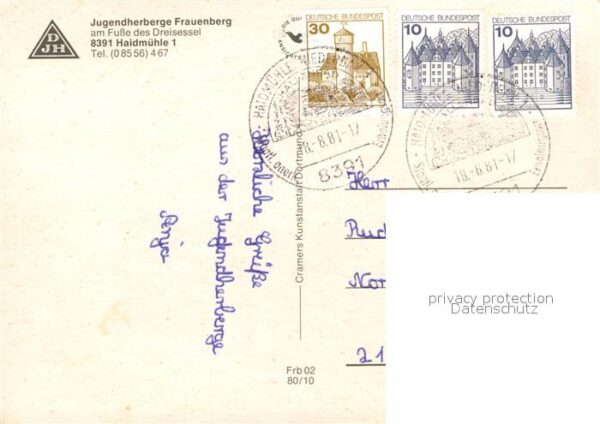 DJH
Jugendherberge Frauenberg
am Fuße des Dreisessel
8391 Haidmühle 1
Tel. (0 85 56) 4 67
30
DEUTSCHE BUNDESPOST
10
DEUTSCHE BUNDESPOST
10
DEUTSCHE BUNDESPOST
HAIDMÜHLE
18.-8.81-17
8391
18.-8.81-17
Herzliche Grüße
aus der Jugendherberge
Cramers Kunstanstalt Dortmund
Frb 02
80/10
Herr
21
privacy protection
Datenschutz